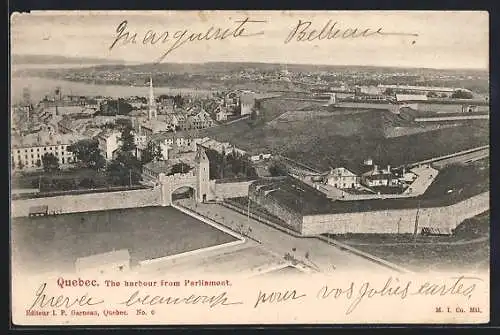 Marguerite Belleau
QUEBEC. The harbour from Parliament.
Merci beaucoup pour vos jolies cartes
Editeur I. P. Garneau, Quebec. No. 6
M. I. Co. Mtl.